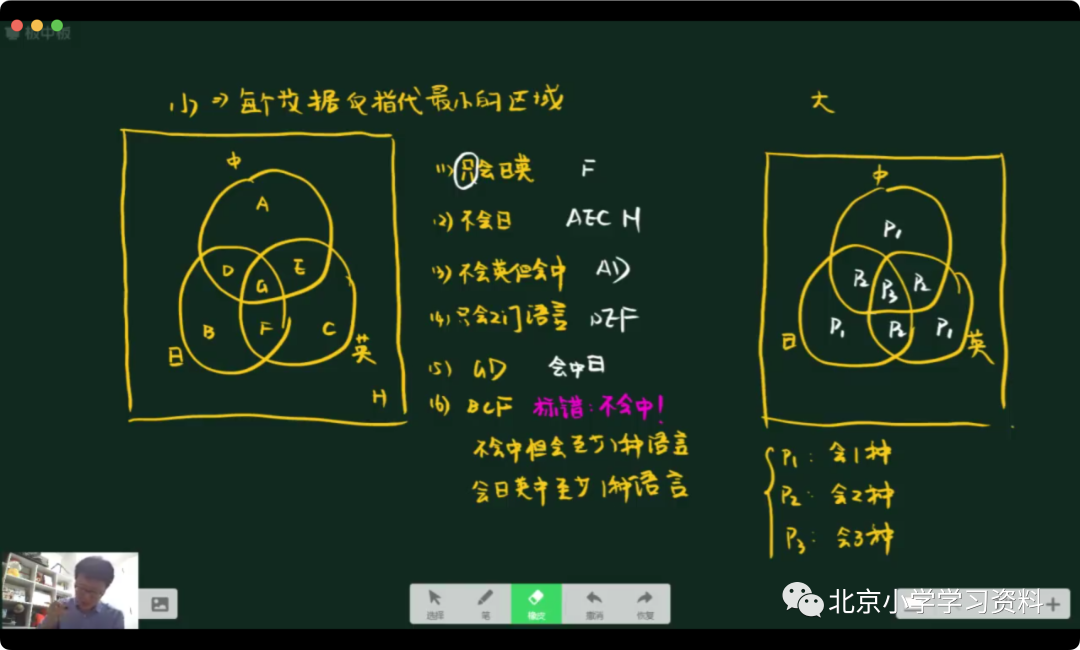 板中板
小 ⇒ 每个数据包指代最小的区域
大
中
A
D
E
G
B
F
C
日
英
H
(1) 只会日英 F
(2) 不会日 AEC H
(3) 不会英但会中 AD
(4) 只会2门语言 DEF
(5) GD 会中日
(6) BCF 标错:不会中!
不会中但会至少1种语言
会日英中至少1种语言
中
P₁
P₂
P₃
P₂
P₁
P₂
P₁
日
英
P₁: 会1种
P₂: 会2种
P₃: 会3种
选择
笔
橡皮
撤消
恢复
北京小学学习资料